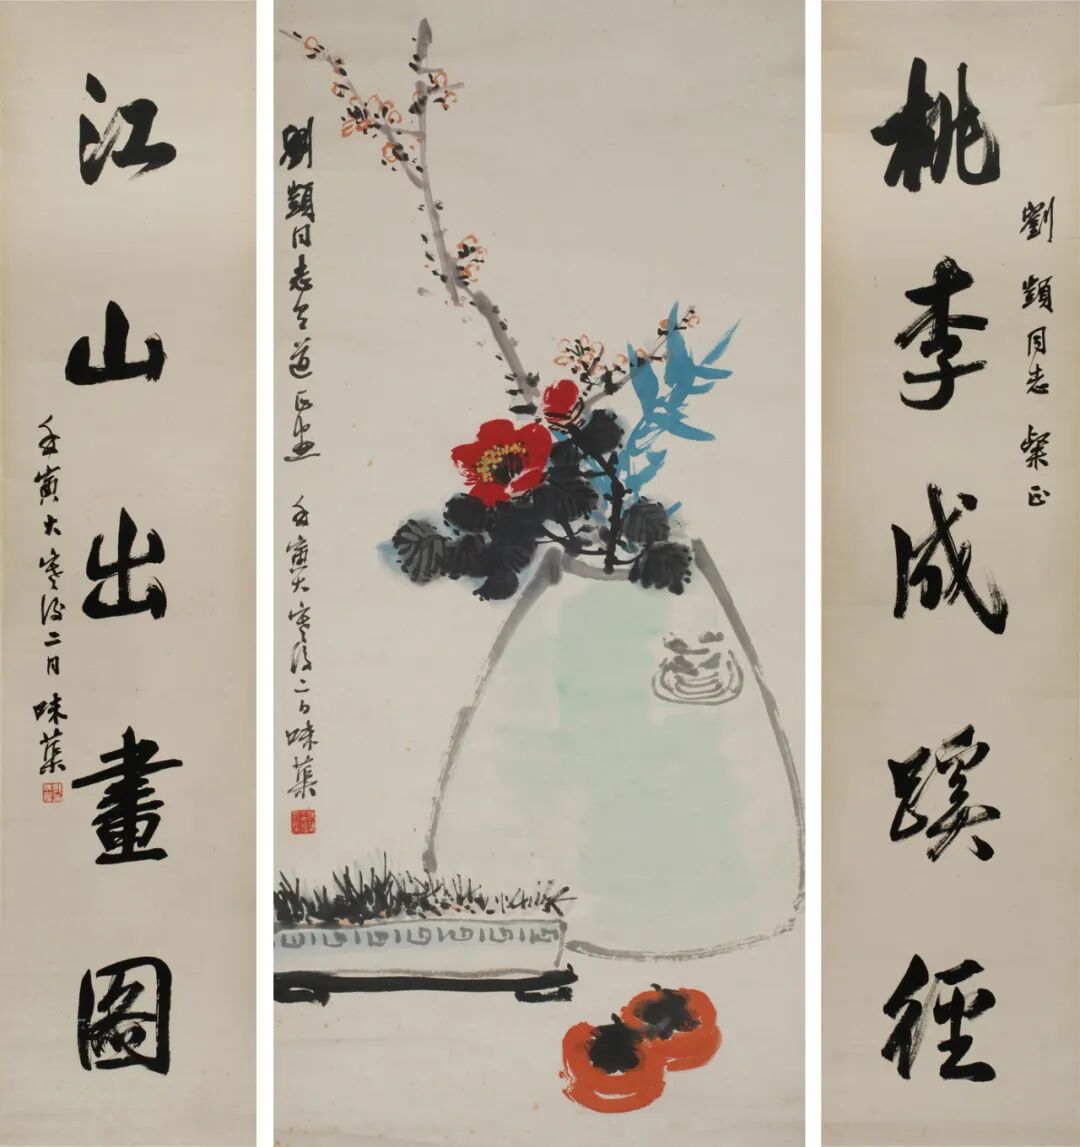 桃李成蹊徑
劉顗同志粲正
劉顗同志道正
壬寅大寒後二日味蕖
江山出畫圖
壬寅大寒後二日味蕖